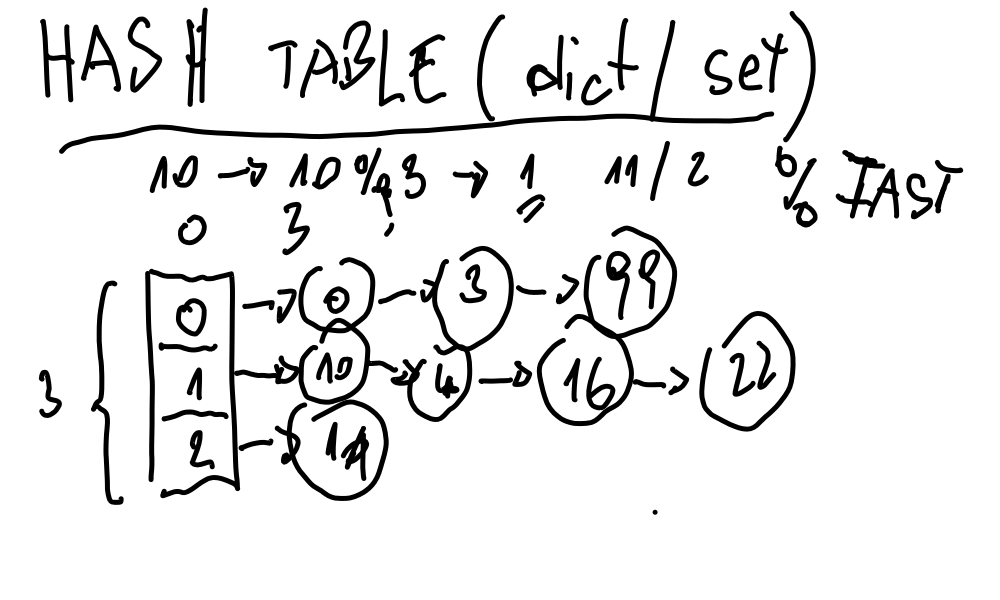 HASH TABLE (dict / set)
10 → 10 % 3 → 1 11 / 2 % FAST
0 3 ;
0 → 0 → 3 → 99
3 { 1 → 10 → 4 → 16 → 22
2 →